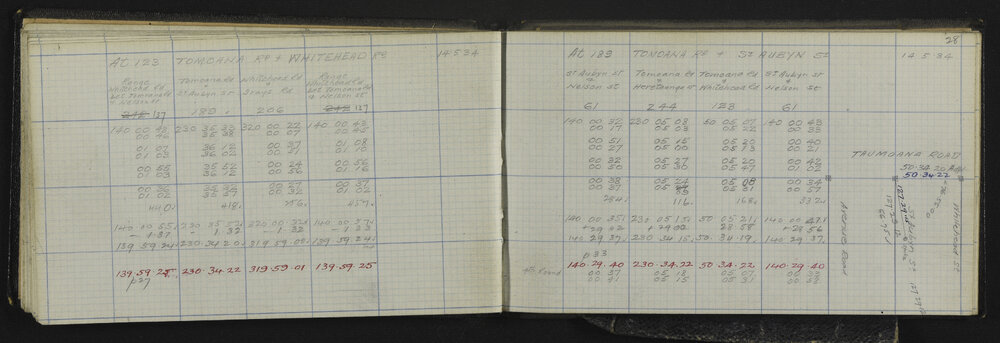 At 123 TOMOANA Rd + WHITEHEAD Rd 14 5 34
Range Whitehead Rd bet Tomoana Rd + Nelson St
Tomoana Rd + St Aubyn St
Whitehead Rd + Grays Rd
Range Whitehead Rd bet Tomoana Rd + Nelson St
127 189 206 127
140 00 43 230 35 33 320 00 22 140 00 43
00 46 35 38 00 07 00 45
01 07 36 12 00 37 01 08
01 03 36 02 00 21 01 10
00 55 35 52 00 24 00 56
01 03 36 12 00 56 01 16
00 36 34 34 00 27 00 37
01 02 35 34 00 32 01 02
440. 418. 256. 457.
140 00 55. 230 35 52. 320 00 32. 140 00 57.
- 1.37 1 32 - 1.32 - 1 33
139 59 24. 230.34 20. 319 59 08. 139 59 24.
139.59.25. 230.34.22 319.59.01 139.59.25
p27
28
At 189 TOMOANA Rd + St AUBYN St 14 5 34
St Aubyn St + Nelson St
Tomoana Rd + Heretaunga St
Tomoana Rd + Whitehead Rd
St Aubyn St + Nelson St
61 244 123 61
140 00 32 230 05 08 50 05 07 140 00 43
00 17 05 03 05 22 00 33
00 51 05 15 05 20 00 40
00 27 05 00 05 13 00 21
00 32 05 27 05 20 00 42
00 50 05 30 05 47 01 02
00 38 05 24 05 08 00 34
00 37 05 05 31 00 57
284. 116. 168. 332.
140 00 35. 230 05 15. 50 05 21. 140 00 41.
+29 02 +29 00 28 58 + 28 56
140 29 37. 230 34 15. 50 34 19. 140 29 37.
p33
140.29.40 230.34.22 50.34.22 140.29.40
00 37 05 18 05 07 00 33
00 41 05 15 05 31 00 53
TAUMOANA ROAD
50.34.22
Avenue Road
St Aubyn St
Whitehead Rd